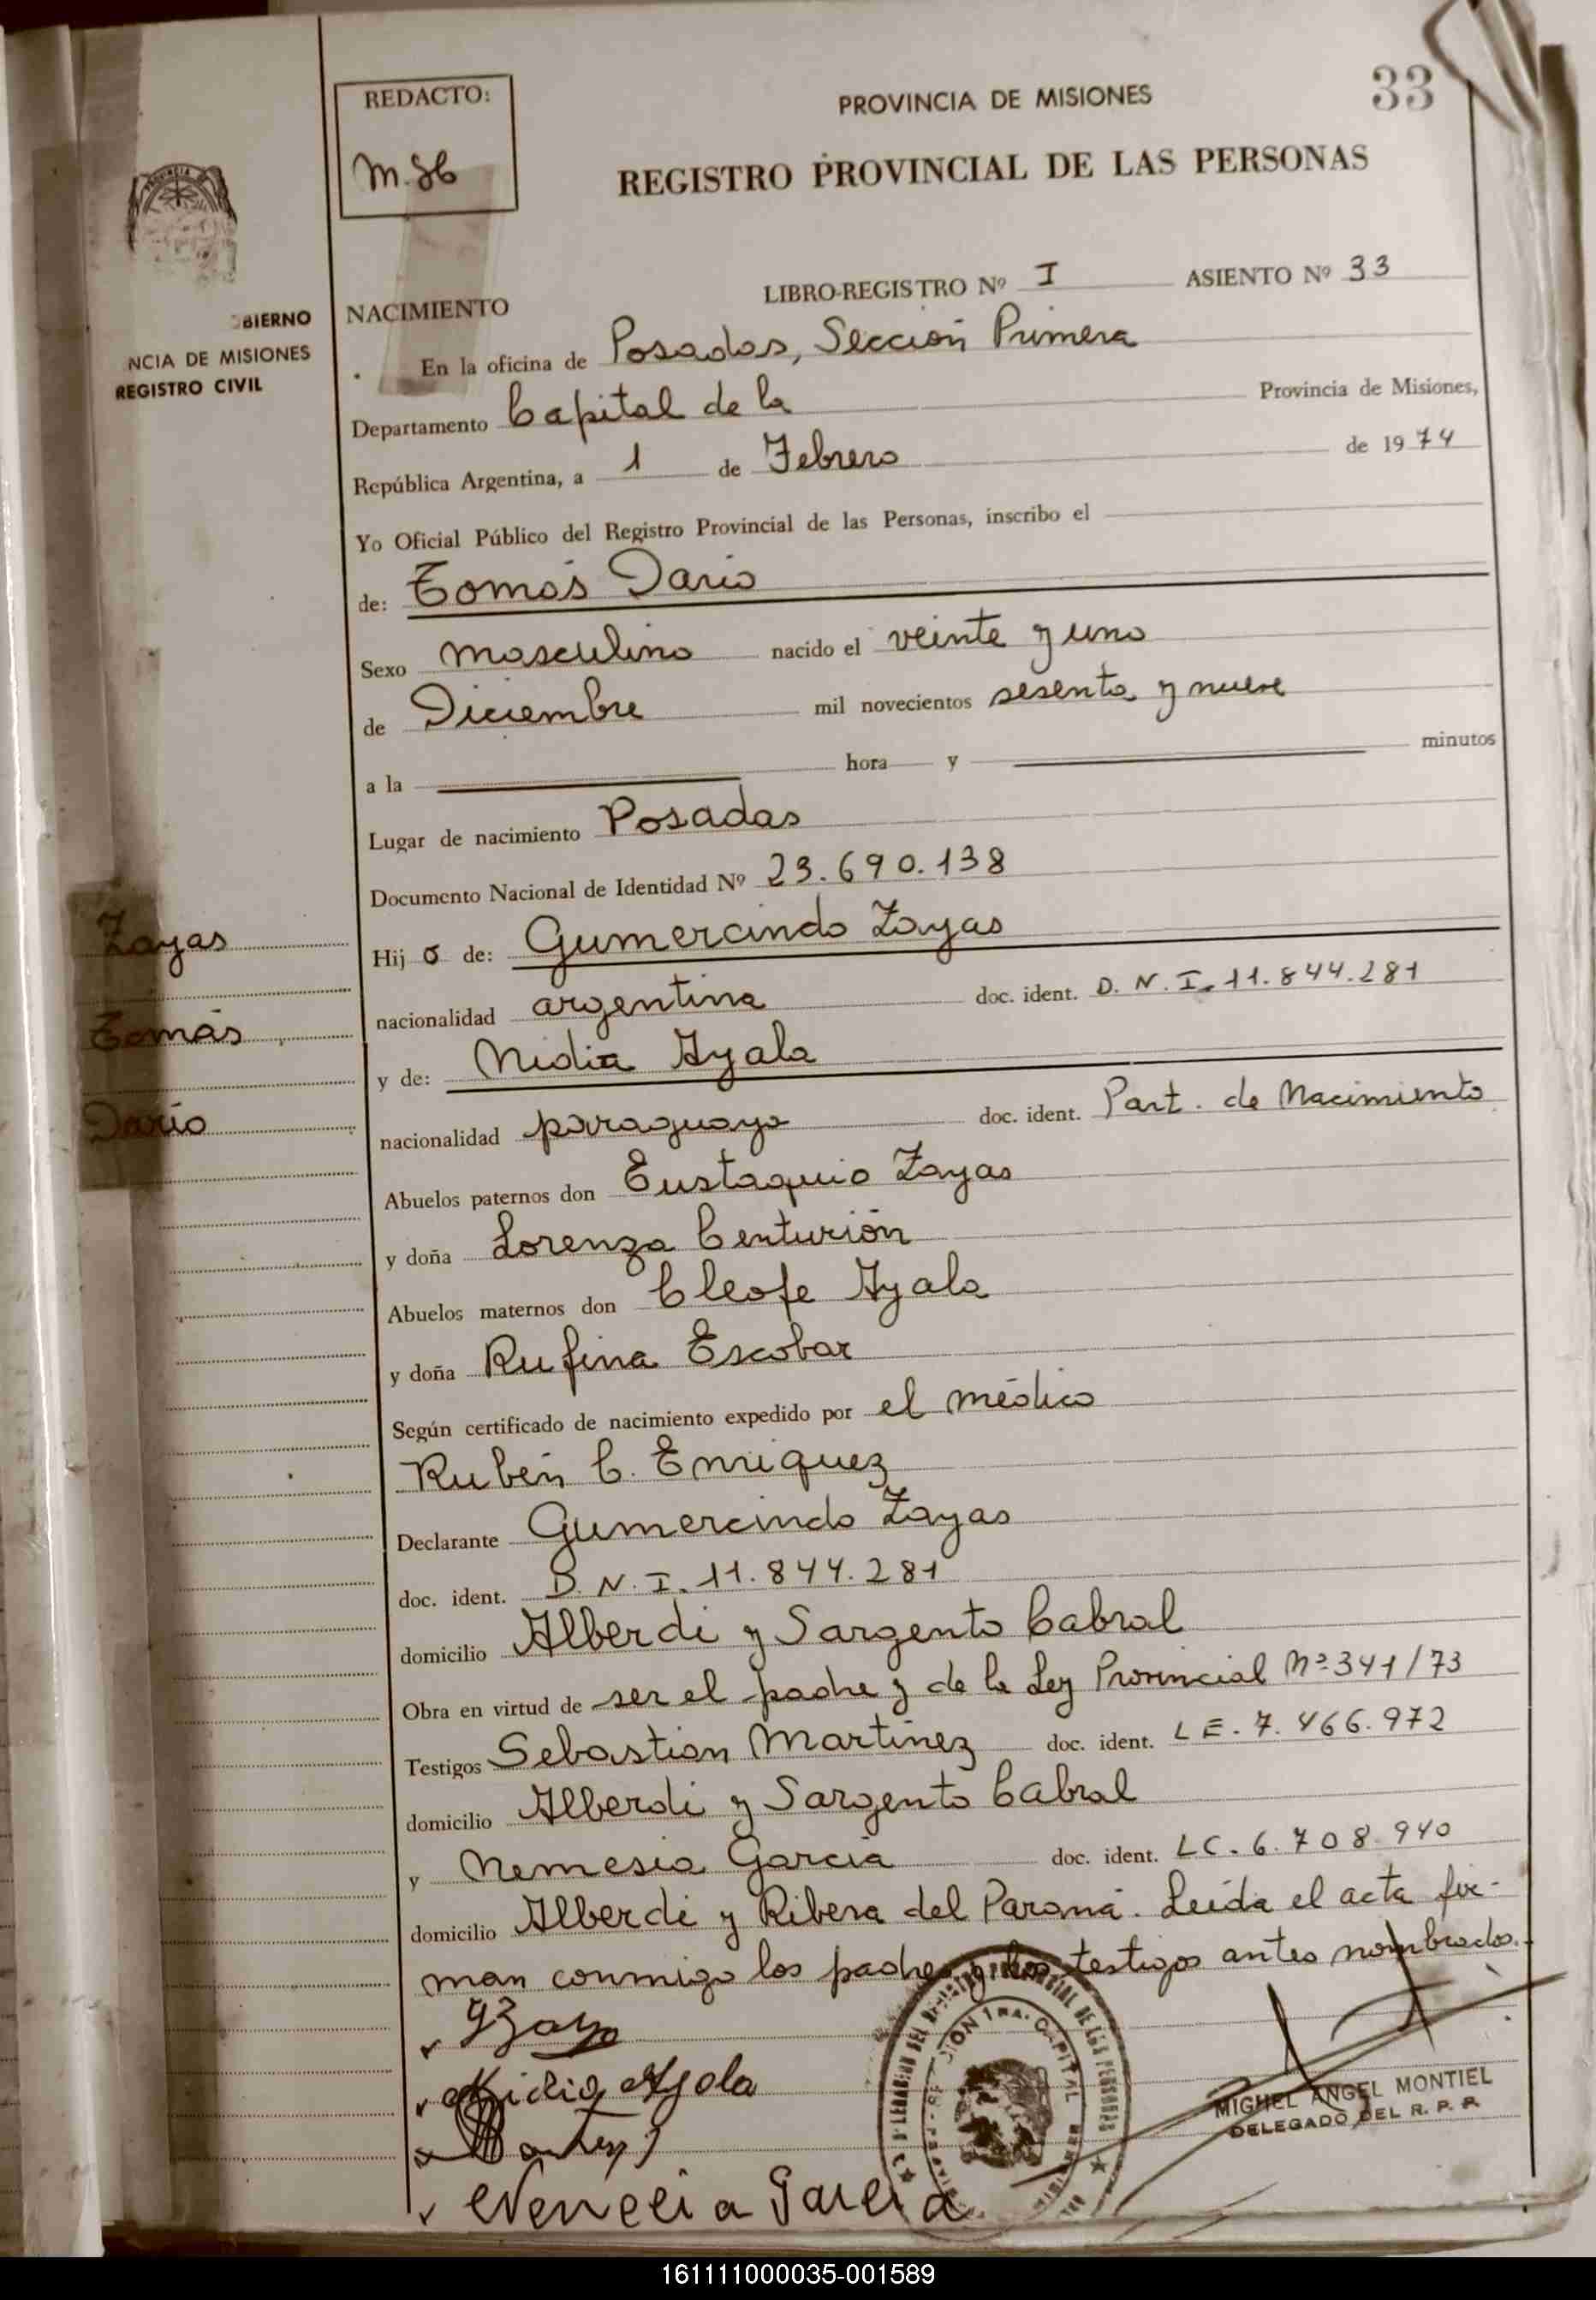 33
REDACTO:
PROVINCIA DE MISIONES
REGISTRO PROVINCIAL DE LAS PERSONAS
LIBRO-REGISTRO Nº I ASIENTO Nº 33
BIERNO
NCIA DE MISIONES
REGISTRO CIVIL
NACIMIENTO
En la oficina de Posadas, Sección Primera
Departamento Capital de la Provincia de Misiones,
República Argentina, a 1 de Febrero de 1974
Yo Oficial Público del Registro Provincial de las Personas, inscribo el
de: Tomás Dario
Sexo masculino nacido el veinte y uno
de Diciembre mil novecientos sesenta y nueve
a la hora y minutos
Lugar de nacimiento Posadas
Documento Nacional de Identidad Nº 23.690.138
Zayas
Tomás
Darío
Hij o de: Gumercindo Zayas
nacionalidad argentina doc. ident. D. N. I. 11.844.281
y de: Nidia Ayala
nacionalidad paraguaya doc. ident. Part. de Nacimiento
Abuelos paternos don Eustaquio Zayas
y doña Lorenza Centurión
Abuelos maternos don Cleofe Ayala
y doña Rufina Escobar
Según certificado de nacimiento expedido por el médico
Rubén C. Enriquez
Declarante Gumercindo Zayas
doc. ident. D. N. I. 11.844.281
domicilio Alberdi y Sargento Cabral
Obra en virtud de ser el padre y de la Ley Provincial Nº 341/73
Testigos Sebastian Martinez doc. ident. LE. 7.466.972
domicilio Alberdi y Sargento Cabral
y Nemesia Garcia doc. ident. LC. 6.708.940
domicilio Alberdi y Ribera del Paraná. Leída el acta fir-
man conmigo los padres y los testigos antes nombrados.
Nidia Ayala
MIGUEL ANGEL MONTIEL
DELEGADO DEL R. P. P.
Garcia
161111000035-001589